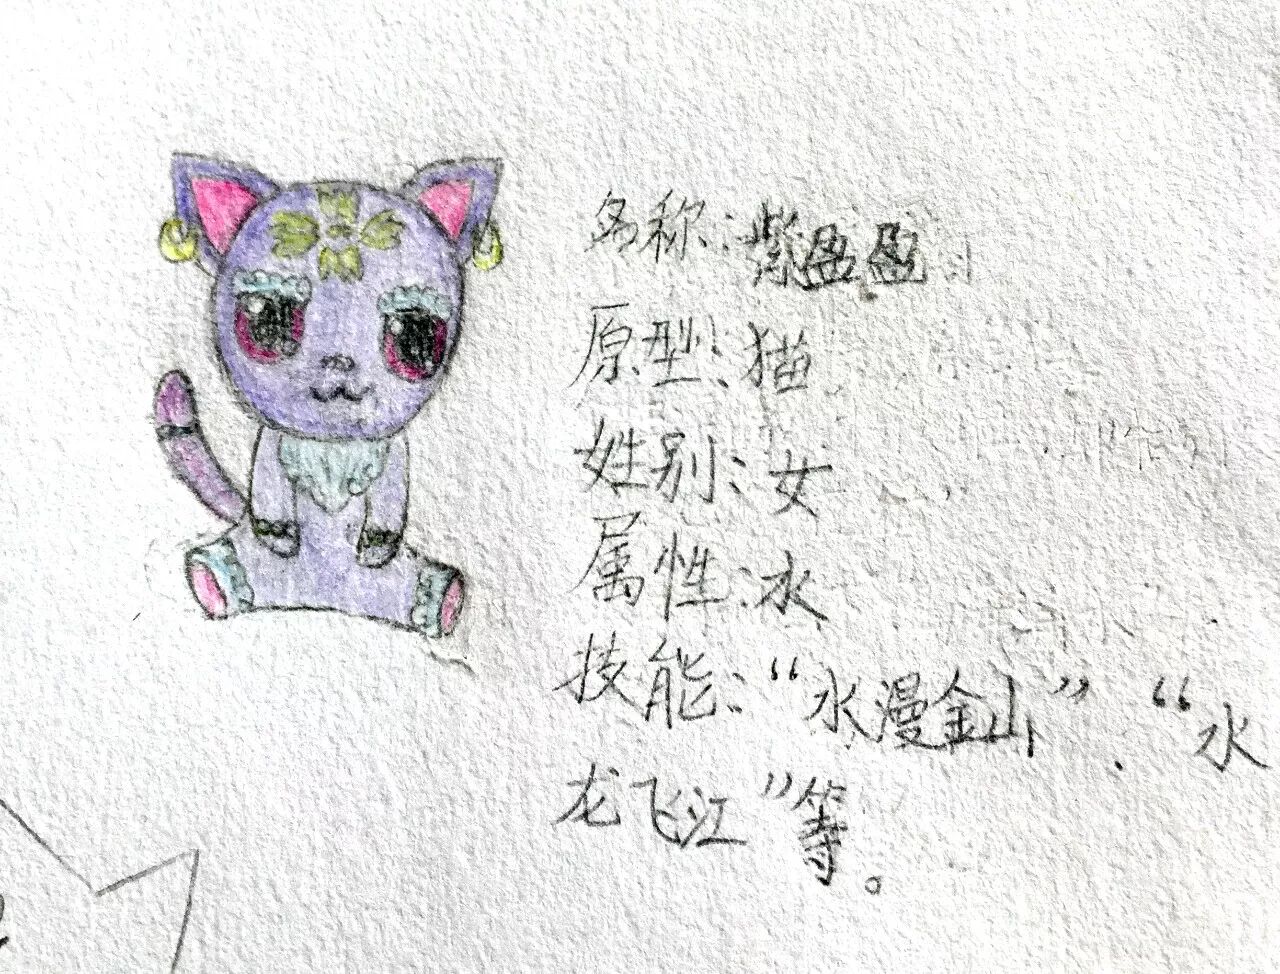 名称:紫盈盈
原型:猫
姓别:女
属性:水
技能:“水漫金山”.“水
龙飞江”等。